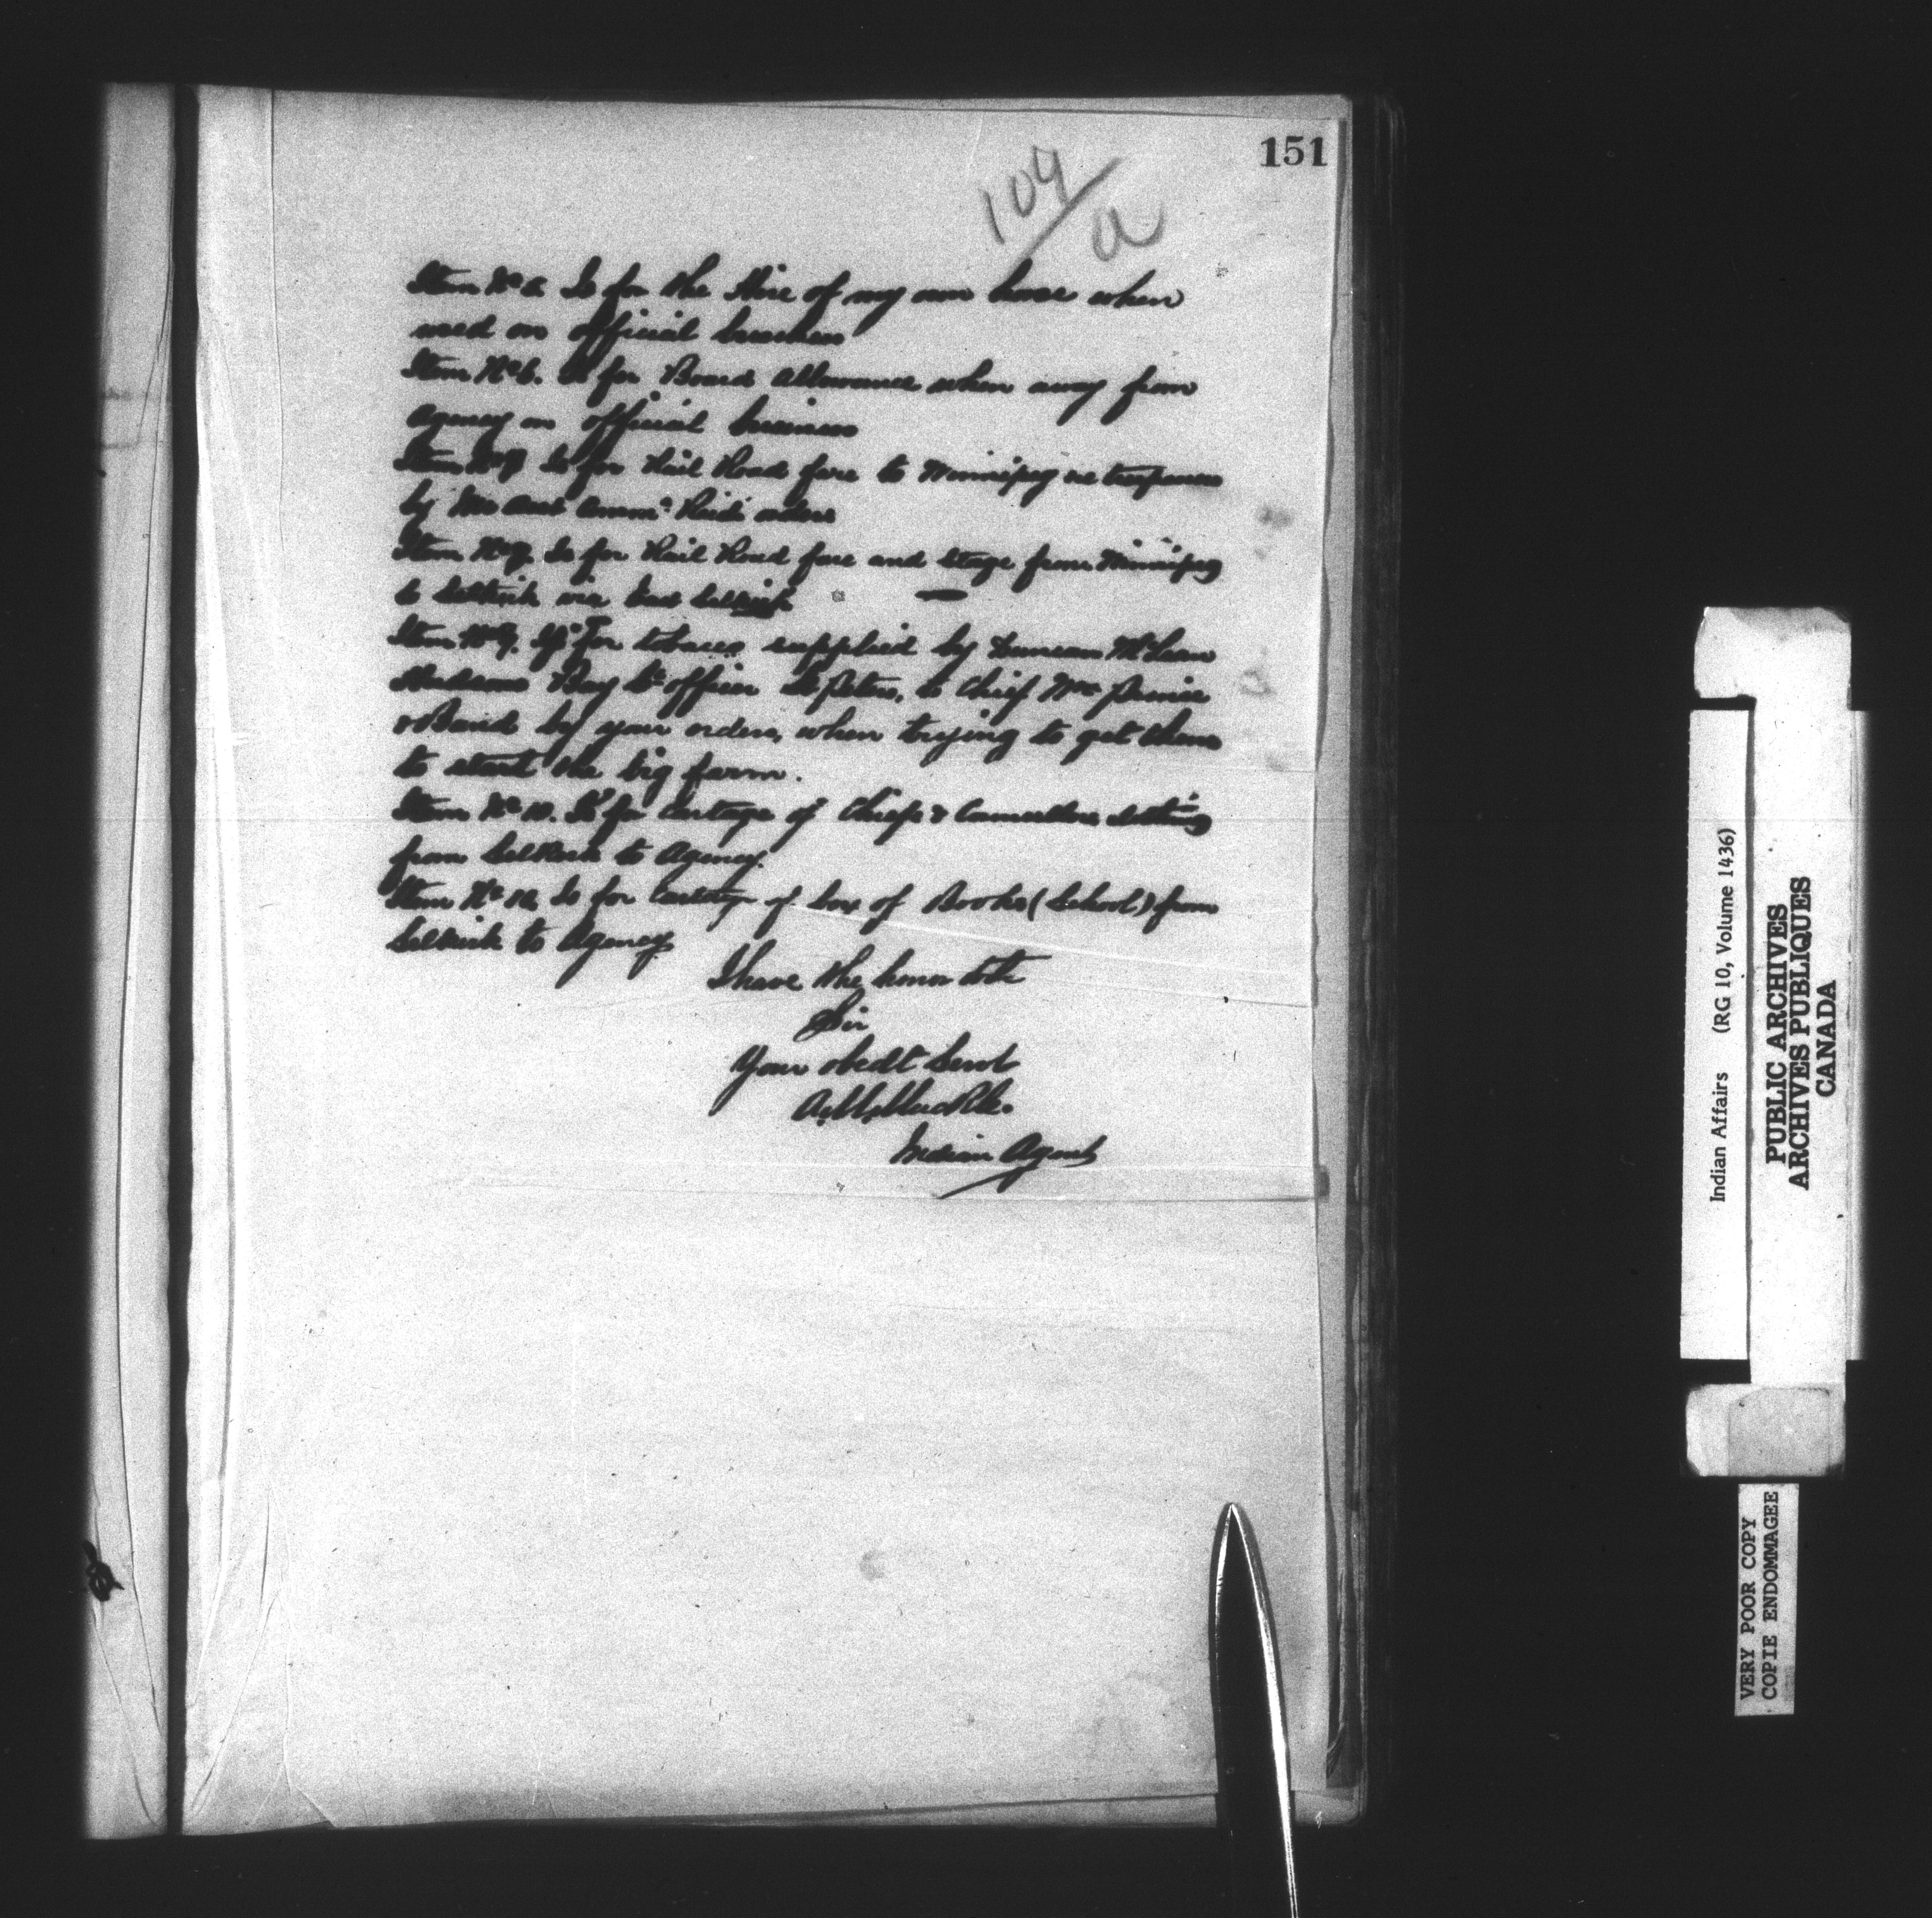 151
109/a
Item No Is for the Hire of my own horse when
used on official business
Item No 6. Is for Board allowance when away from
Agency on official business
Item No Is for Rail Road fare to Winnipeg re
by orders
Item No Is for Rail Road fare and stage from Winnipeg
to Selkirk via East Selkirk
Item No 9. Is for tobacco supplied by Duncan McLean
Hudsons Bay Co officer St Peters, to Chief Wm Prince
& Band by your orders, when trying to get them
to start the big farm.
Item No 10. Is for Cartage of Chiefs & Councillors clothing
from Selkirk to Agency.
Item No Is for Cartage of box of Books (School) from
Selkirk to Agency
I have the honor to be
Sir
Your obedt Servt
A. M. Muckle.
Indian Agent
Indian Affairs (RG 10, Volume 1436)
PUBLIC ARCHIVES
ARCHIVES PUBLIQUES
CANADA
VERY POOR COPY
COPIE ENDOMMAGEE